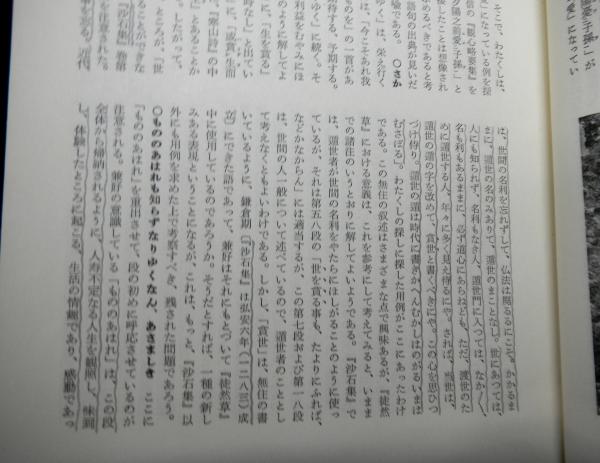 愛」になってい
そこで、わたくしは、
愛」になっている例を探
信の『観心略要集』を
夕陽之前愛子孫」と
接したことは想像され
求めるべきであると考
語句の出典が見いだ
喩である。　○さか
ゆく」は、栄え行く
は、「今こそあれ我
ものを」の一首があ
待する、予期する。
利益をむやみにほ
ゆく」に続く。そ
のように解してよ
に、「生を貪る」
時なし」と出てい
『寒山詩』の中
に、「成貪」生而
」とあることか
。したがって、
ところが、「世
ることができな
『沙石集』巻第
を注意された。
事も忘る。近代
は、世間の名利を忘れずして、仏法は廃るるにこそ。かかるま
まに、遁世の名のみありて、遁世のまことなし。世にあっては、
人にも知られず、名利もなき人、遁世門に入つては、なか〳〵、
名も利もあるままに、必ず道心にあらねども、ただ、渡世のた
めに遁世する人、年々に多く見え侍るにや。されば、当世は、
遁世の遁の字を改めて、貪世と書くべきにや。この心を思ひつ
づけ侍り。遁世の遁は時代に書きかへむむかしはのがるいまは
むさぼる」。わたくしの探しに探した用例がここにあったわけ
である。この無住の叙述はさまざまな点で興味あるが、『徒然
草』における意義は、これを参考にして考えてみると、いまま
での諸注のいうとおりに解してよいようである。『沙石集』で
は、遁世者が世間の名利をやたらにほしがることのように使っ
ているが、それは第五八段の「世を貪る事も、たよりにふれば、
などかなからん」には適当するが、この第七段および第一八段
は、世間の人一般について述べているので、遁世者のこととし
て考えなくともよいわけである。しかし、「貪世」は、無住の書
いているように、鎌倉期（『沙石集』は弘安六年（一二八三）成
立）にできた語であって、兼好はそれにもとづいて『徒然草』
中に使用しているのであろうか。そうだとすれば、一種の新し
みある表現ということになるが、これは、もっと、『沙石集』以
外にも用例を求めた上で考察すべき、残された問題であろう。
○もののあはれも知らずなりゆくなん、あさましき　ここに
「もののあはれ」を重出させて、段の初めに呼応させているのが
注意される。兼好の意識している「もののあはれ」は、この段
全体から帰納されるように、人寿不定なる人生を観照し、味到
し、体験したところに起こる、生活の情趣であり、感動であっ